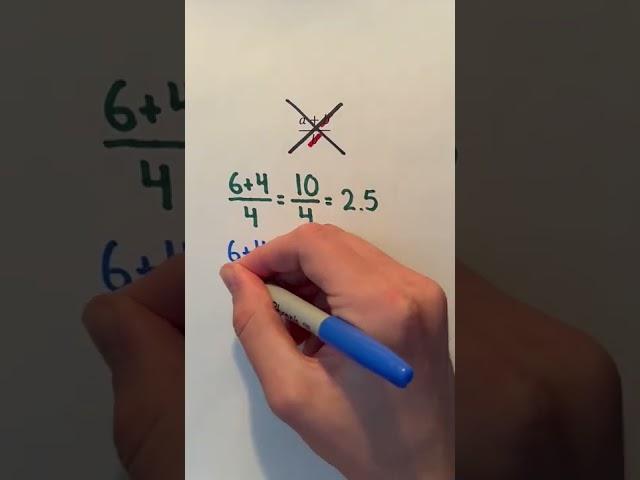 a + b
b
6+4/4 = 10/4 = 2.5
6+4